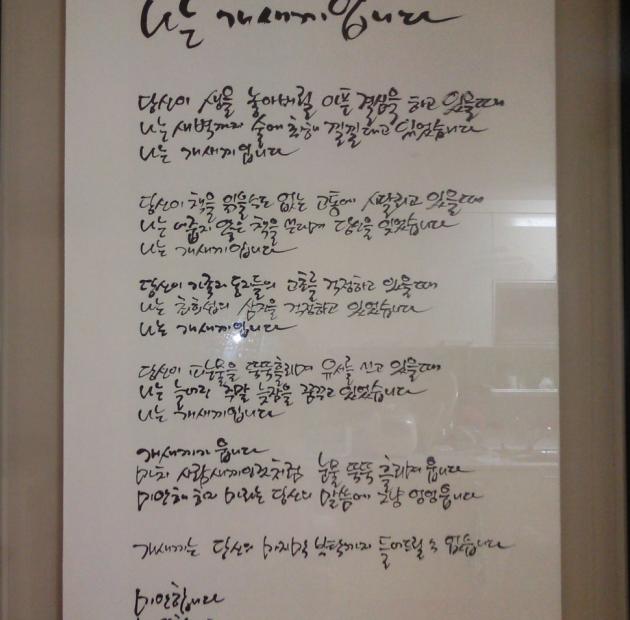 나는 개새끼입니다
당신이 생을 놓아버릴 아픈 결심을 하고 있을때
나는 새벽까지 술에 취해 낄낄대고 있었습니다
나는 개새끼입니다
당신이 책을 읽을수도 없는 고통에 시달리고 있을때
나는 어줍지 않은 책을 쓴다며 당신을 잊었습니다
나는 개새끼입니다
당신이 가족과 동지들의 고초를 걱정하고 있을때
나는 최희섭의 삼진을 걱정하고 있었습니다
나는 개새끼입니다
당신이 피눈물을 뚝뚝흘리며 유서를 쓰고 있을때
나는 늘어진 주말 늦잠을 꿈꾸고 있었습니다
나는 개새끼입니다
개새끼가 웁니다
마치 사람새끼인것처럼 눈물 뚝뚝 흘리며 웁니다
미안해 하지 마라는 당신의 말씀에 그냥 엉엉 웁니다
개새끼는 당신의 마지막 부탁까지 들어드릴 수 없습니다
미안합니다